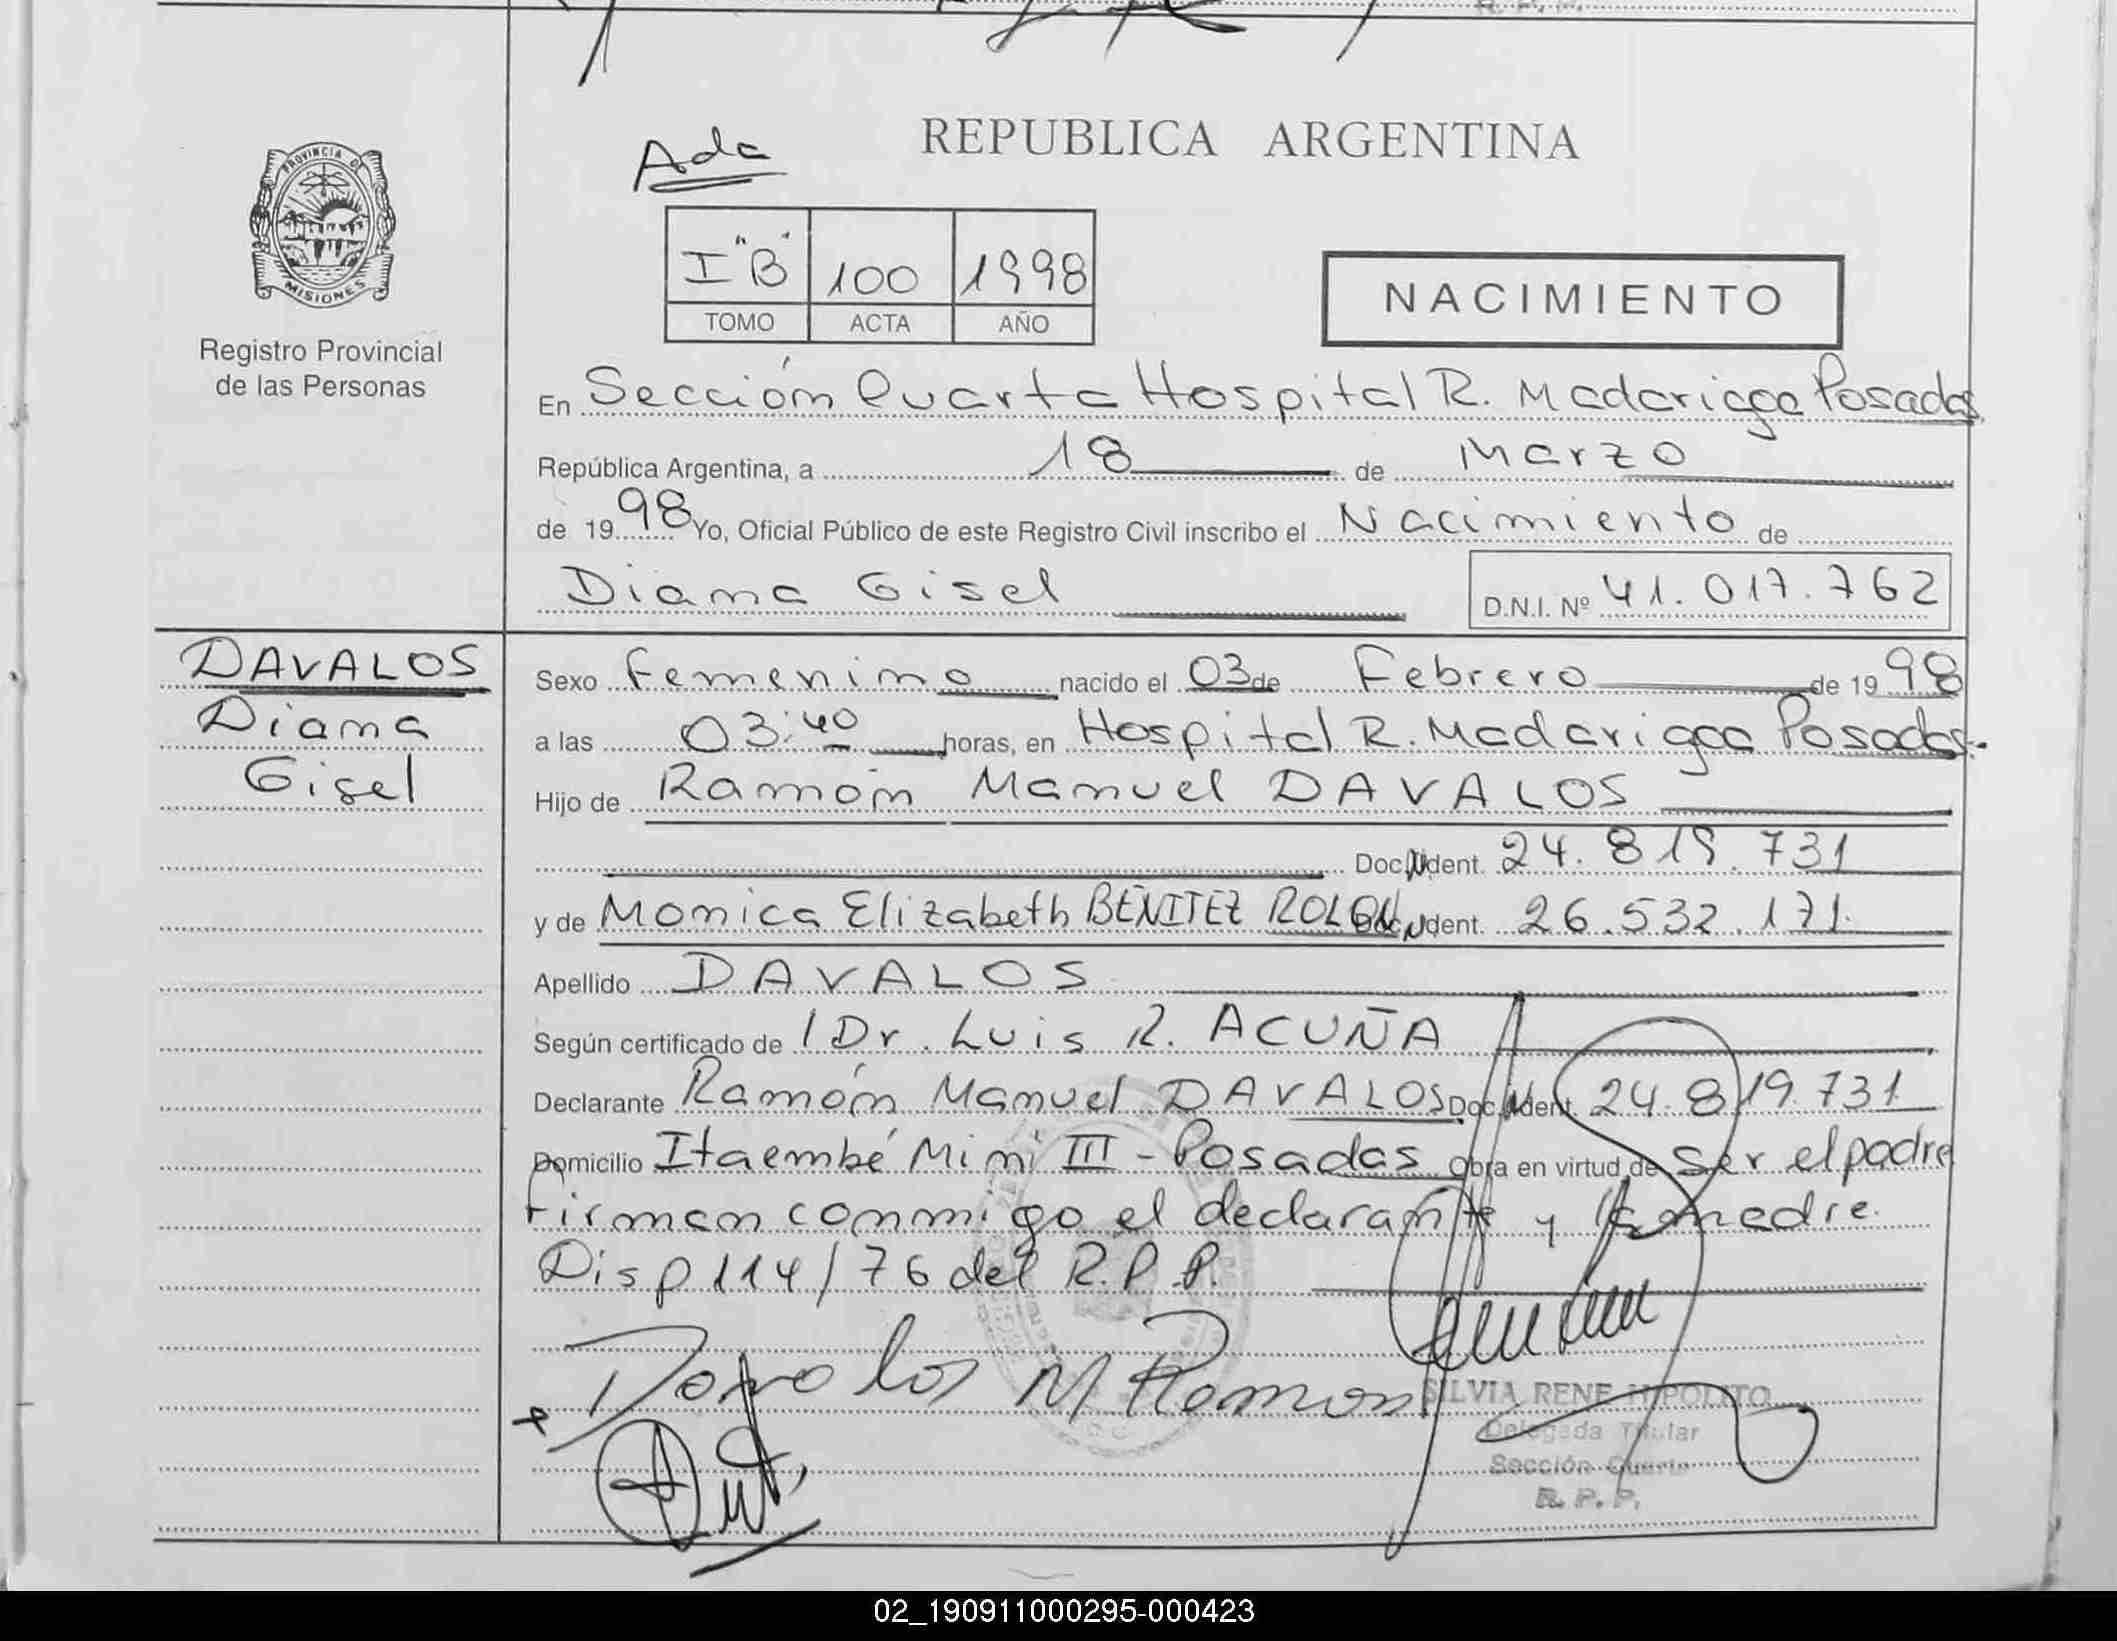 REPUBLICA ARGENTINA
Ada
PROVINCIA DE
MISIONES
I "B" 100 1998
TOMO ACTA AÑO
NACIMIENTO
Registro Provincial
de las Personas
En Sección Quarta Hospital R. Madariaga Posadas
República Argentina, a 18 de Marzo
de 1998 Yo, Oficial Público de este Registro Civil inscribo el Nacimiento de
Diana Gisel D.N.I. Nº 41.017.762
DAVALOS
Diana
Gisel
Sexo Femenino nacido el 03 de Febrero de 1998
a las 03:40 horas, en Hospital R. Madariaga Posadas.
Hijo de Ramón Manuel DAVALOS
Doc. Ident. 24.819.731
y de Monica Elizabeth BENITEZ ROLON Doc. Ident. 26.532.171.
Apellido DAVALOS
Según certificado de 1 Dr. Luis R. ACUÑA
Declarante Ramón Manuel DAVALOS Doc. Ident. 24.819.731
Domicilio Itaembé Miní III - Posadas Obra en virtud de Ser el padre
Firman conmigo el declarante y la madre.
Disp 114/76 del R.P.P.
Davalos M Ramon
SILVIA RENE HIPOLITO
Delegada Titular
Sección Cuarta
R. P. P.
02_190911000295-000423